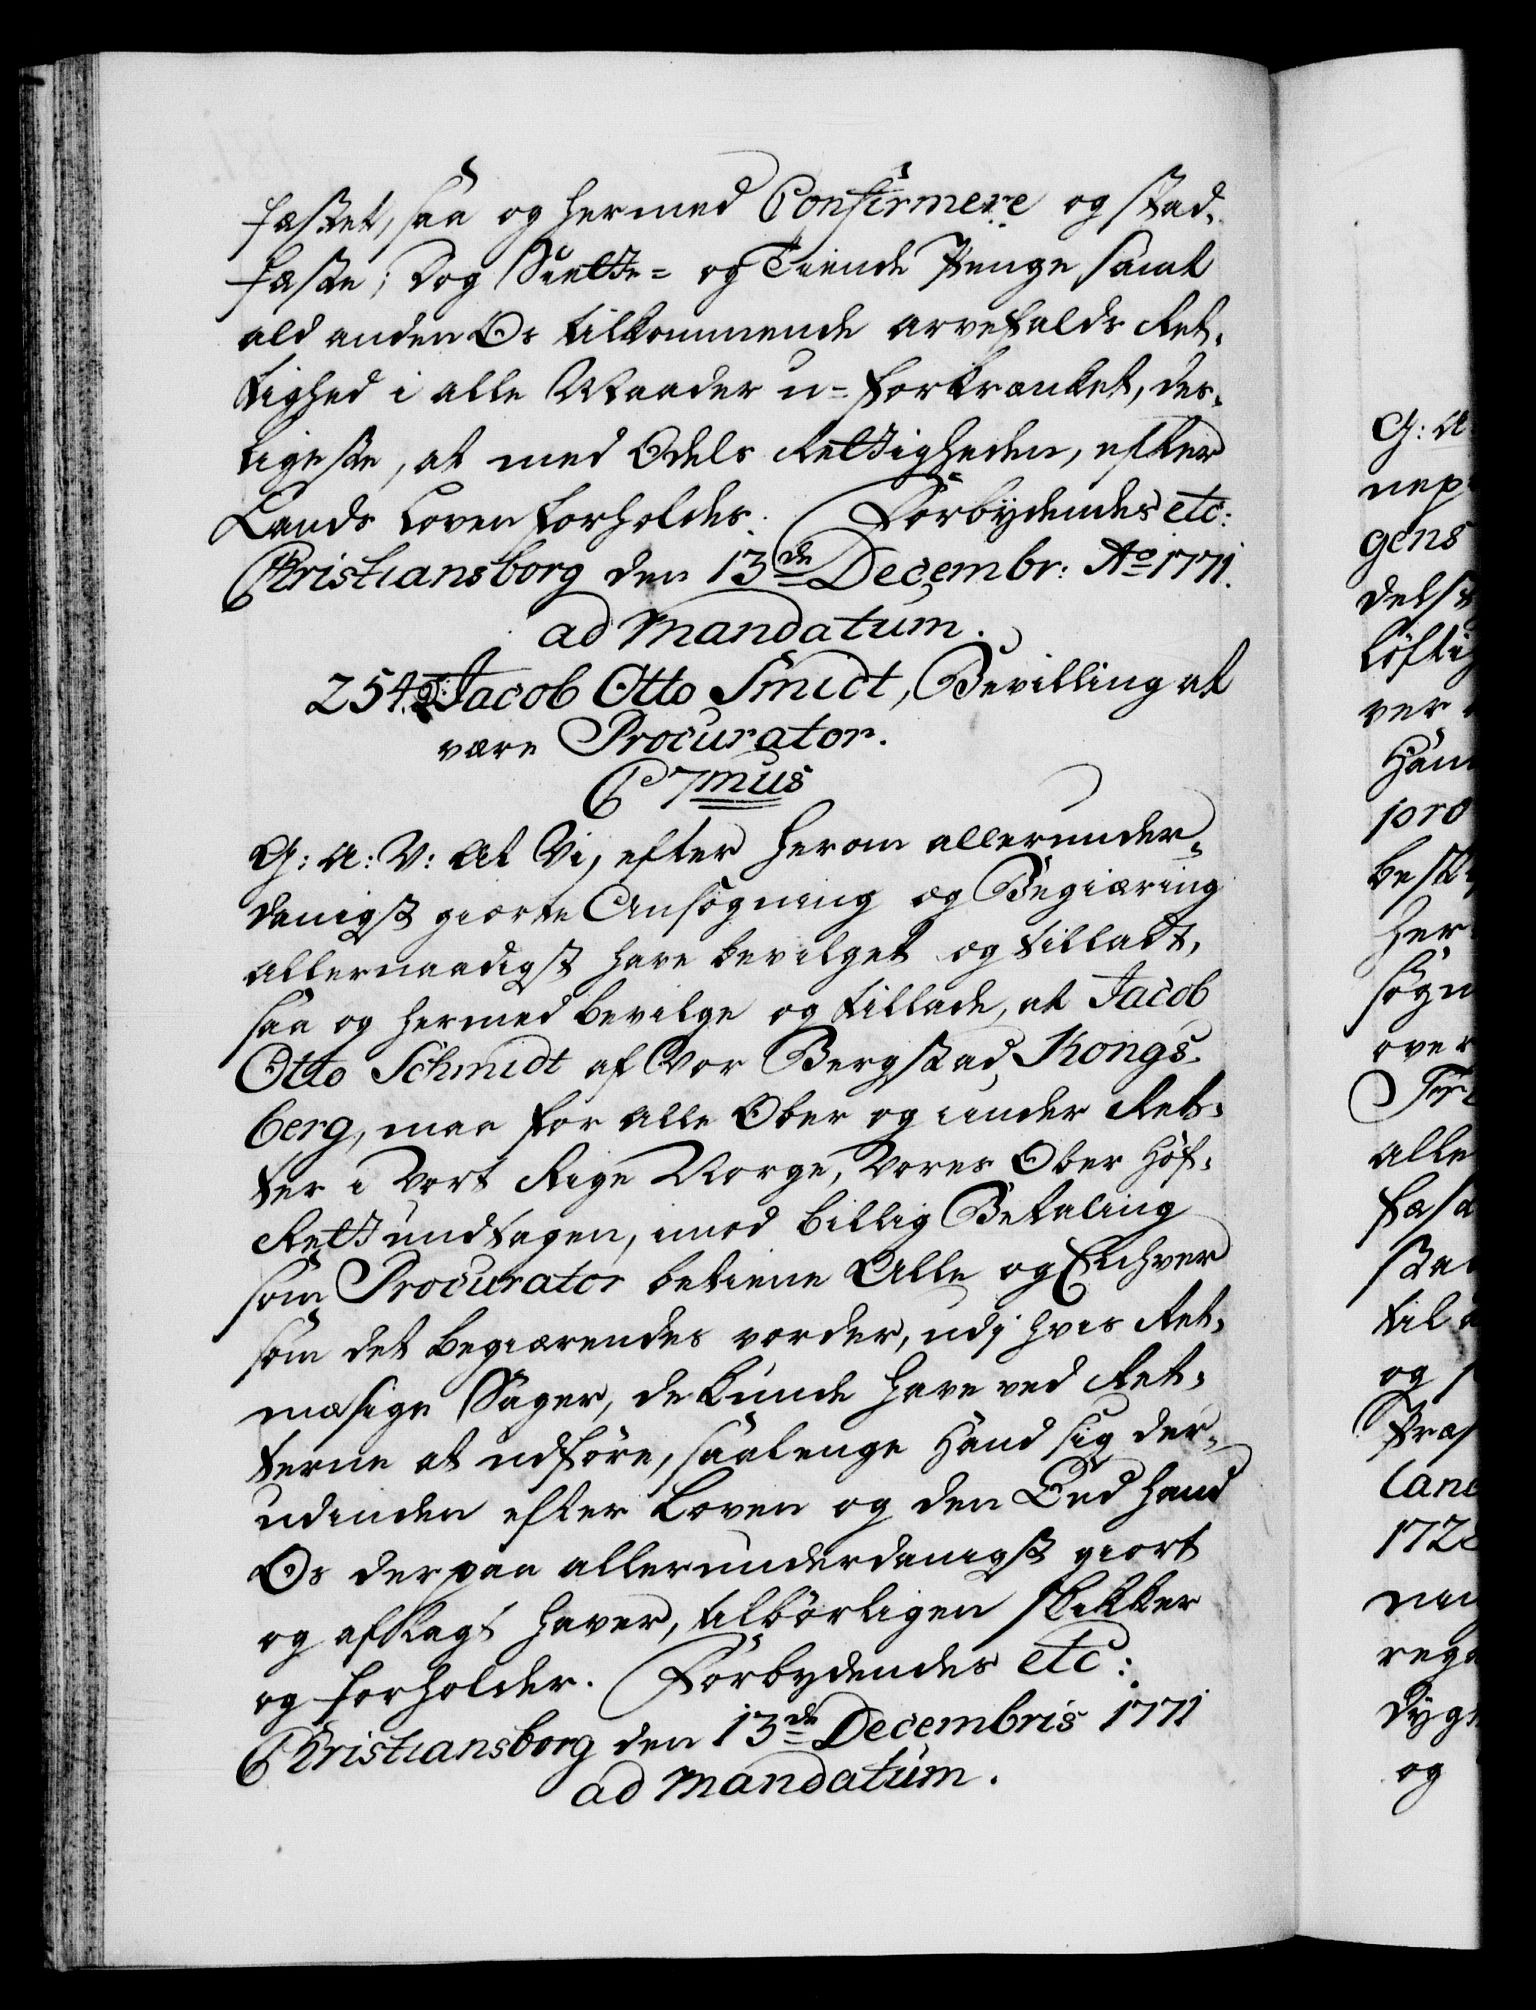 fæstet, saa og hermed Confirmere og stad-
fæste; Dog Siette= og Tiende Penge samt
ald anden Os tilkommende arvefalds Ret-
tighed i alle Maader u=forkrænket, des-
ligeste, at med Odels Rettigheden, efter
Lands Loven forholdes. Forbydendes etc:
Christiansborg den 13de Decembr: Ao 1771.
ad Mandatum.
254. Jacob Otto Smidt, Bevilling at
være Procurator.
C 7mus
G: A: V: At Vi, efter herom allerunder-
danigst giorte Ansøgning og Begiæring
allernaadigst have bevilget og tilladt,
saa og hermed bevilge og tillade, at Jacob
Otto Schmidt af Vor Bergstad Kongs-
berg, maa for alle Ober og under Ret-
ter i Vort Rige Norge, Vores Ober Hof-
Rett undtagen, imod billig Betaling
som Procurator betiene Alle og Enhver
som det begiærendes vorder, udj hvis Ret-
mæsige Sager, de kunde have ved Ret-
terne at udføre, saalenge Hand sig der-
udinden efter Loven og den Eed hand
Os derpaa allerunderdanigst giort
og aflagt haver, tilbørligen skikker
og forholder. Forbydendes etc:
Christiansborg den 13de Decembris 1771
ad Mandatum.
G: A
gens
ver
Ham
pro
her
søgn
over
alle
til
og
1728
og